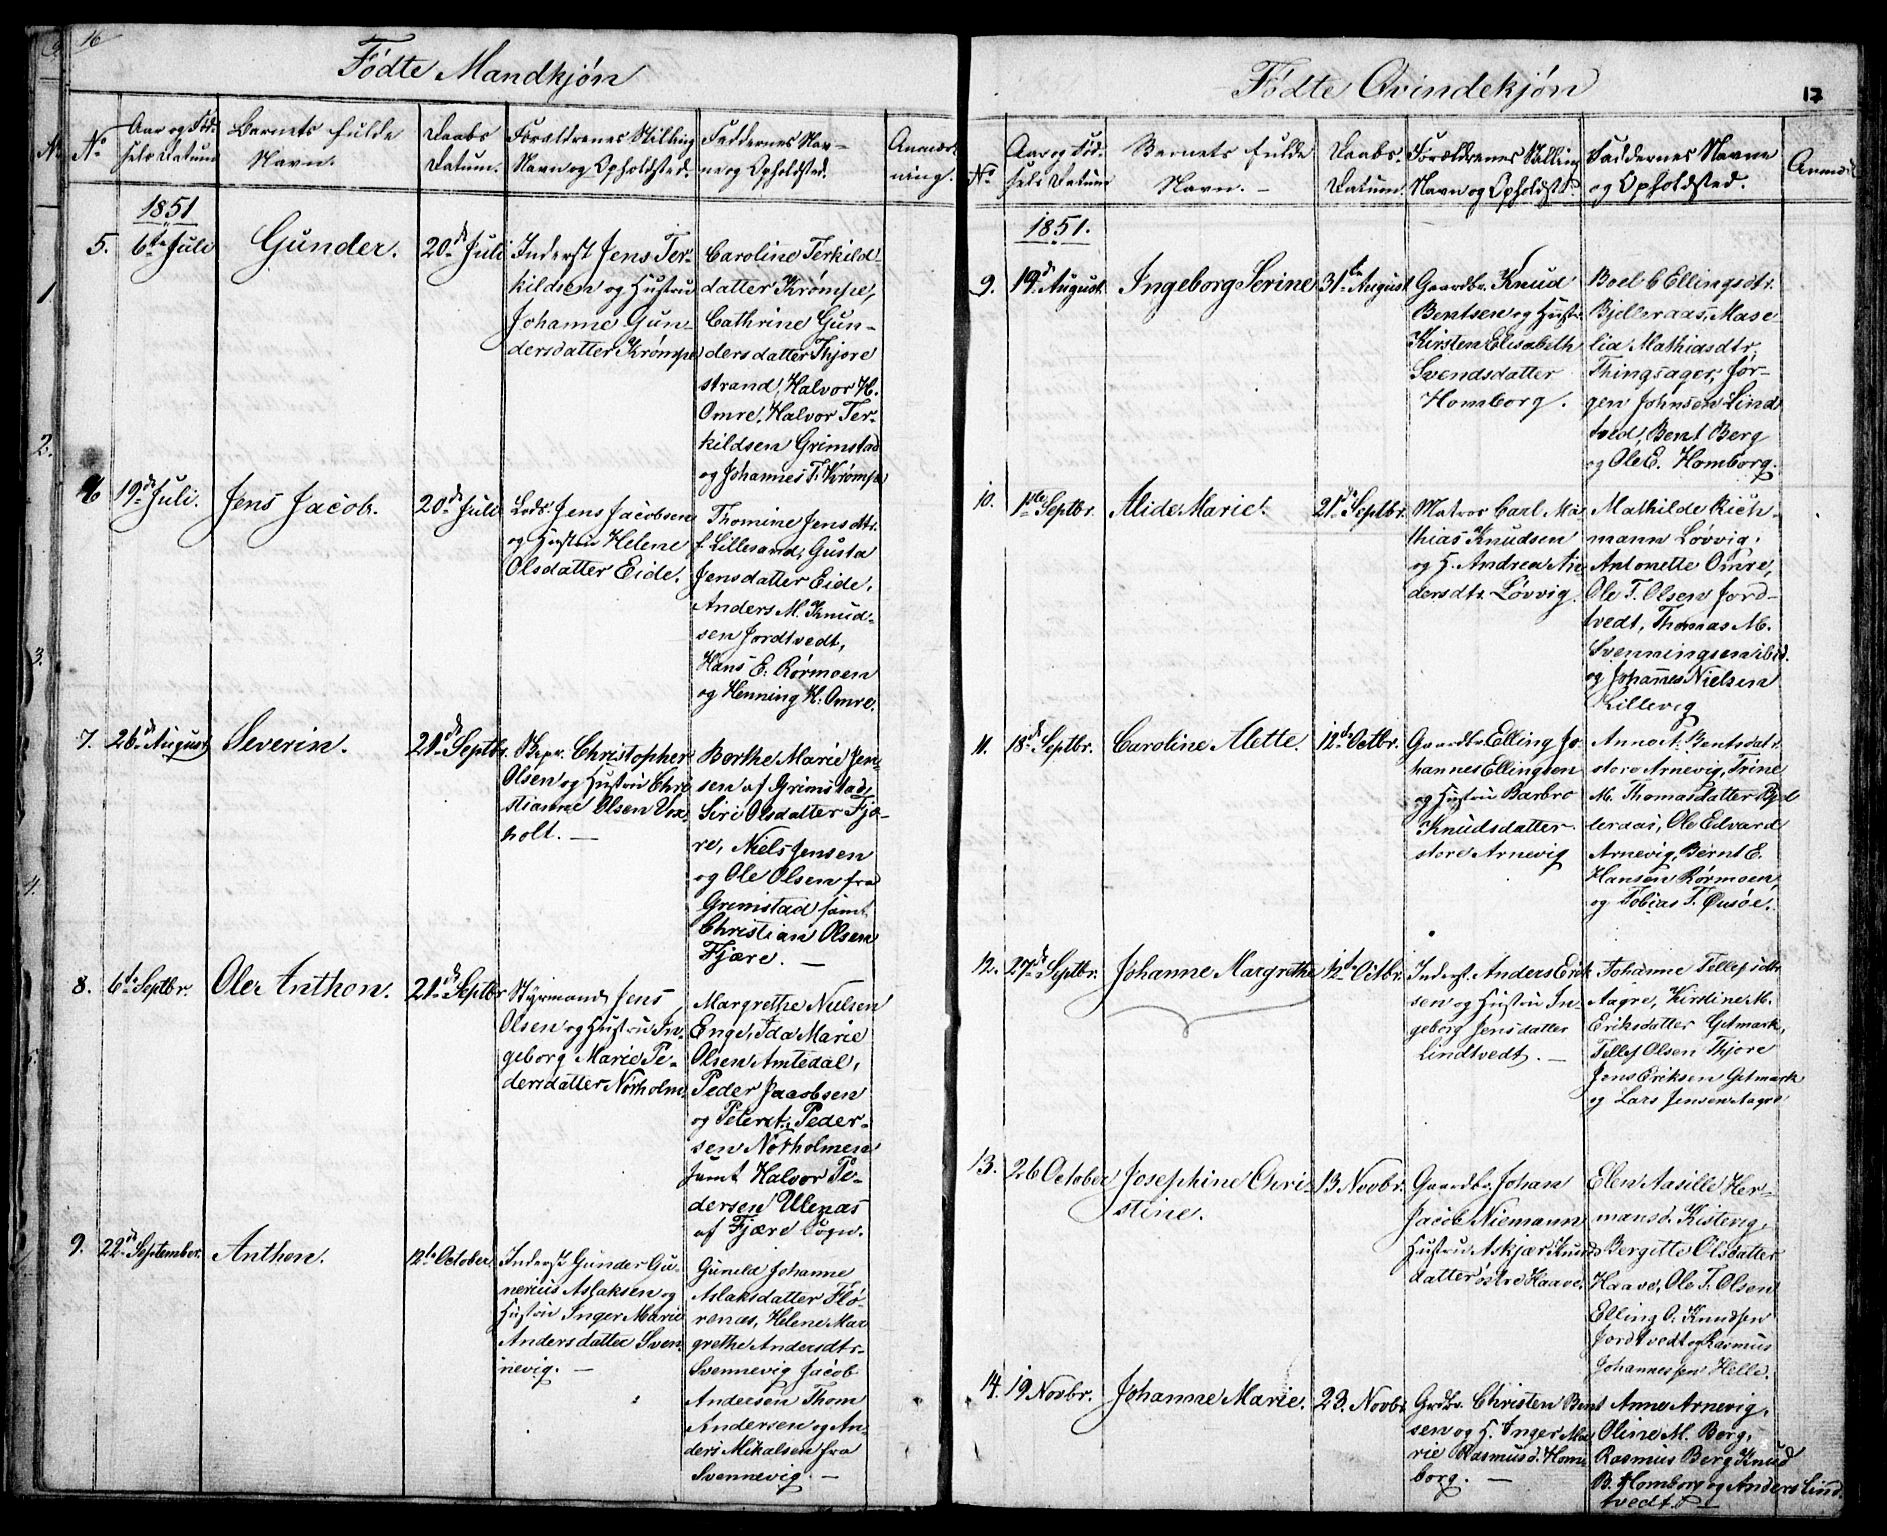 16
Fødte Mandkjøn
No
Aar og Fød-
sels Datum
Barnets fulde
Navn.
Daabs
Datum.
Forældrenes Stilling
Navn og Opholdsted.
Faddernes Nav-
ne og Opholdsted.
Anmærk
ning.
1851
5. 6te Juli
Gunder.
20de Juli
Inderst Jens Ter-
kildsen og Hustru
Johanne Gun-
dersdatter Krømpe
Caroline Terkild
datter Krømpe,
Cathrine Gun-
dersdatter Thjore
strand, Halvor H.
Omre, Halvor Ter-
kildsen Grimstad
og Johannes T. Krømpe
6 19de Juli.
Jens Jacob.
20de Juli
Lods Jens Jacobsen
og Hustru Helene
Olsdatter Eide.
Thomine Jensdtr.
f. Lillesand, Gusta
Jensdatter Eide,
Anders M. Knud-
sen Jordtvedt,
Hans E. Rørmoen
og Henning H. Omre.
7. 26de August
Severin.
21de Septbr.
Skpr. Christopher
Olsen og Hustru Chri
stianne Olsen Vox-
holt. —
Berthe Marie Jen-
sen af Grimstad,
Siri Olsdatter Fjæ-
re, Niels Jensen
og Ole Olsen fra
Grimstad samt
Christian Olsen
Fjære. —
8. 6te Septbr.
Ole Anthon.
21de Septbr
Styrmand Jens
Olsen og Hustru In-
geborg Marie Pe-
dersdatter Nørholm.
Margrethe Nielsen
Enge, Ida Marie
Olsen Amtedal,
Peder Jacobsen
og Peter Peder-
sen Nørholmen
samt Halvor Pe-
dersen Ulenæs
af Fjære Sogn.
9. 22de September.
Anthon.
12te October
Inderst Gunder Gu-
nerius Aslaksen og
Hustru Inger Marie
Andersdatter Sven-
nevig. —
Gunild Johanne
Aslaksdatter Flø-
renæs, Helene Mar
grethe Andersdtr.
Svennevig Jacob
Andersen Thom
Andersen og An-
ders Mikalsen fra
Svennevig. —
Fødte Qvindekjøn
17
No
Aar og Fød-
sels Datum
Barnets fulde
Navn. —
Daabs.
Datum.
Forældrenes Stilling
Navn og Opholdst.
Faddernes Navne
og Opholdsted.
Anmærk
1851.
9. 19de August.
Ingeborg Serine
31te August
Gaardbr. Knud
Bentsen og Hustr.
Kirsten Elisabeth
Svendsdatter
Homborg.
Boel C Ellingsdtr.
Bjelleraas, Mase-
lia Mathiasdtr,
Thingsager, Jør-
gen Johnsen Lind
tved, Bent Berg
og Ole E. Homborg.
10. 1ste Septbr.
Alide Marie.
21de Septbr.
Matros Carl Ma-
thias Knudsen
og H. Andrea An-
dersdtr Løvvig.
Mathilde Rich-
mann Løvvig,
Antonette Omre,
Ole T. Olsen Jord-
tvedt, Thomas M.
Svenningsen ibid.
og Johannes Nielsen
Killevig
11. 18de Septbr.
Caroline Alette.
12te Octbr.
Gaardbr. Elling Jo-
hannes Ellingsen
og Hustru Barbro
Knudsdatter
store Arnevig
Anne A. Bentsdatr.
store Arnevig, Trine
M. Thomasdatter Bjel
leraas, Ole Edvard
Arnevig, Bernt E.
Hansen Rørmoen,
og Tobias T. Øusøe.
12. 27de Septbr.
Johanne Margrethe
12te Octbr.
Inderst Anders Erik
sen og Hustru In-
geborg Jensdatter
Lindtvedt. —
Johanne Tellefsdtr
Aagre, Kirstine M.
Eriksdatter Gitmark,
Tellef Olsen Thjore
Jens Eriksen Gitmark
og Lars Jensen Aagre
13. 26 October
Josephine Chri-
stine.
13 Novbr.
Gaardbr. Johan
Jacob Niemann
Hustru Askjær Knuds
datter østre Haave.
Elen Aasille Her-
mansd. Kistevig,
Bergitte Olsdatter
Haave, Ole T. Olsen
Elling O. Knudsen
Jordtvedt og Rasmus
Johannessen Helle.
14. 19 Novbr.
Johanne Marie.
23. Novbr.
Grdbr. Christen Bent
sen og H. Inger Ma
rie Rasmusd. Hom
borg. —
Anne Arnevig,
Oline M. Berg,
Rasmus Berg Knud
B. Homborg og Anders Lind-
tvedt.